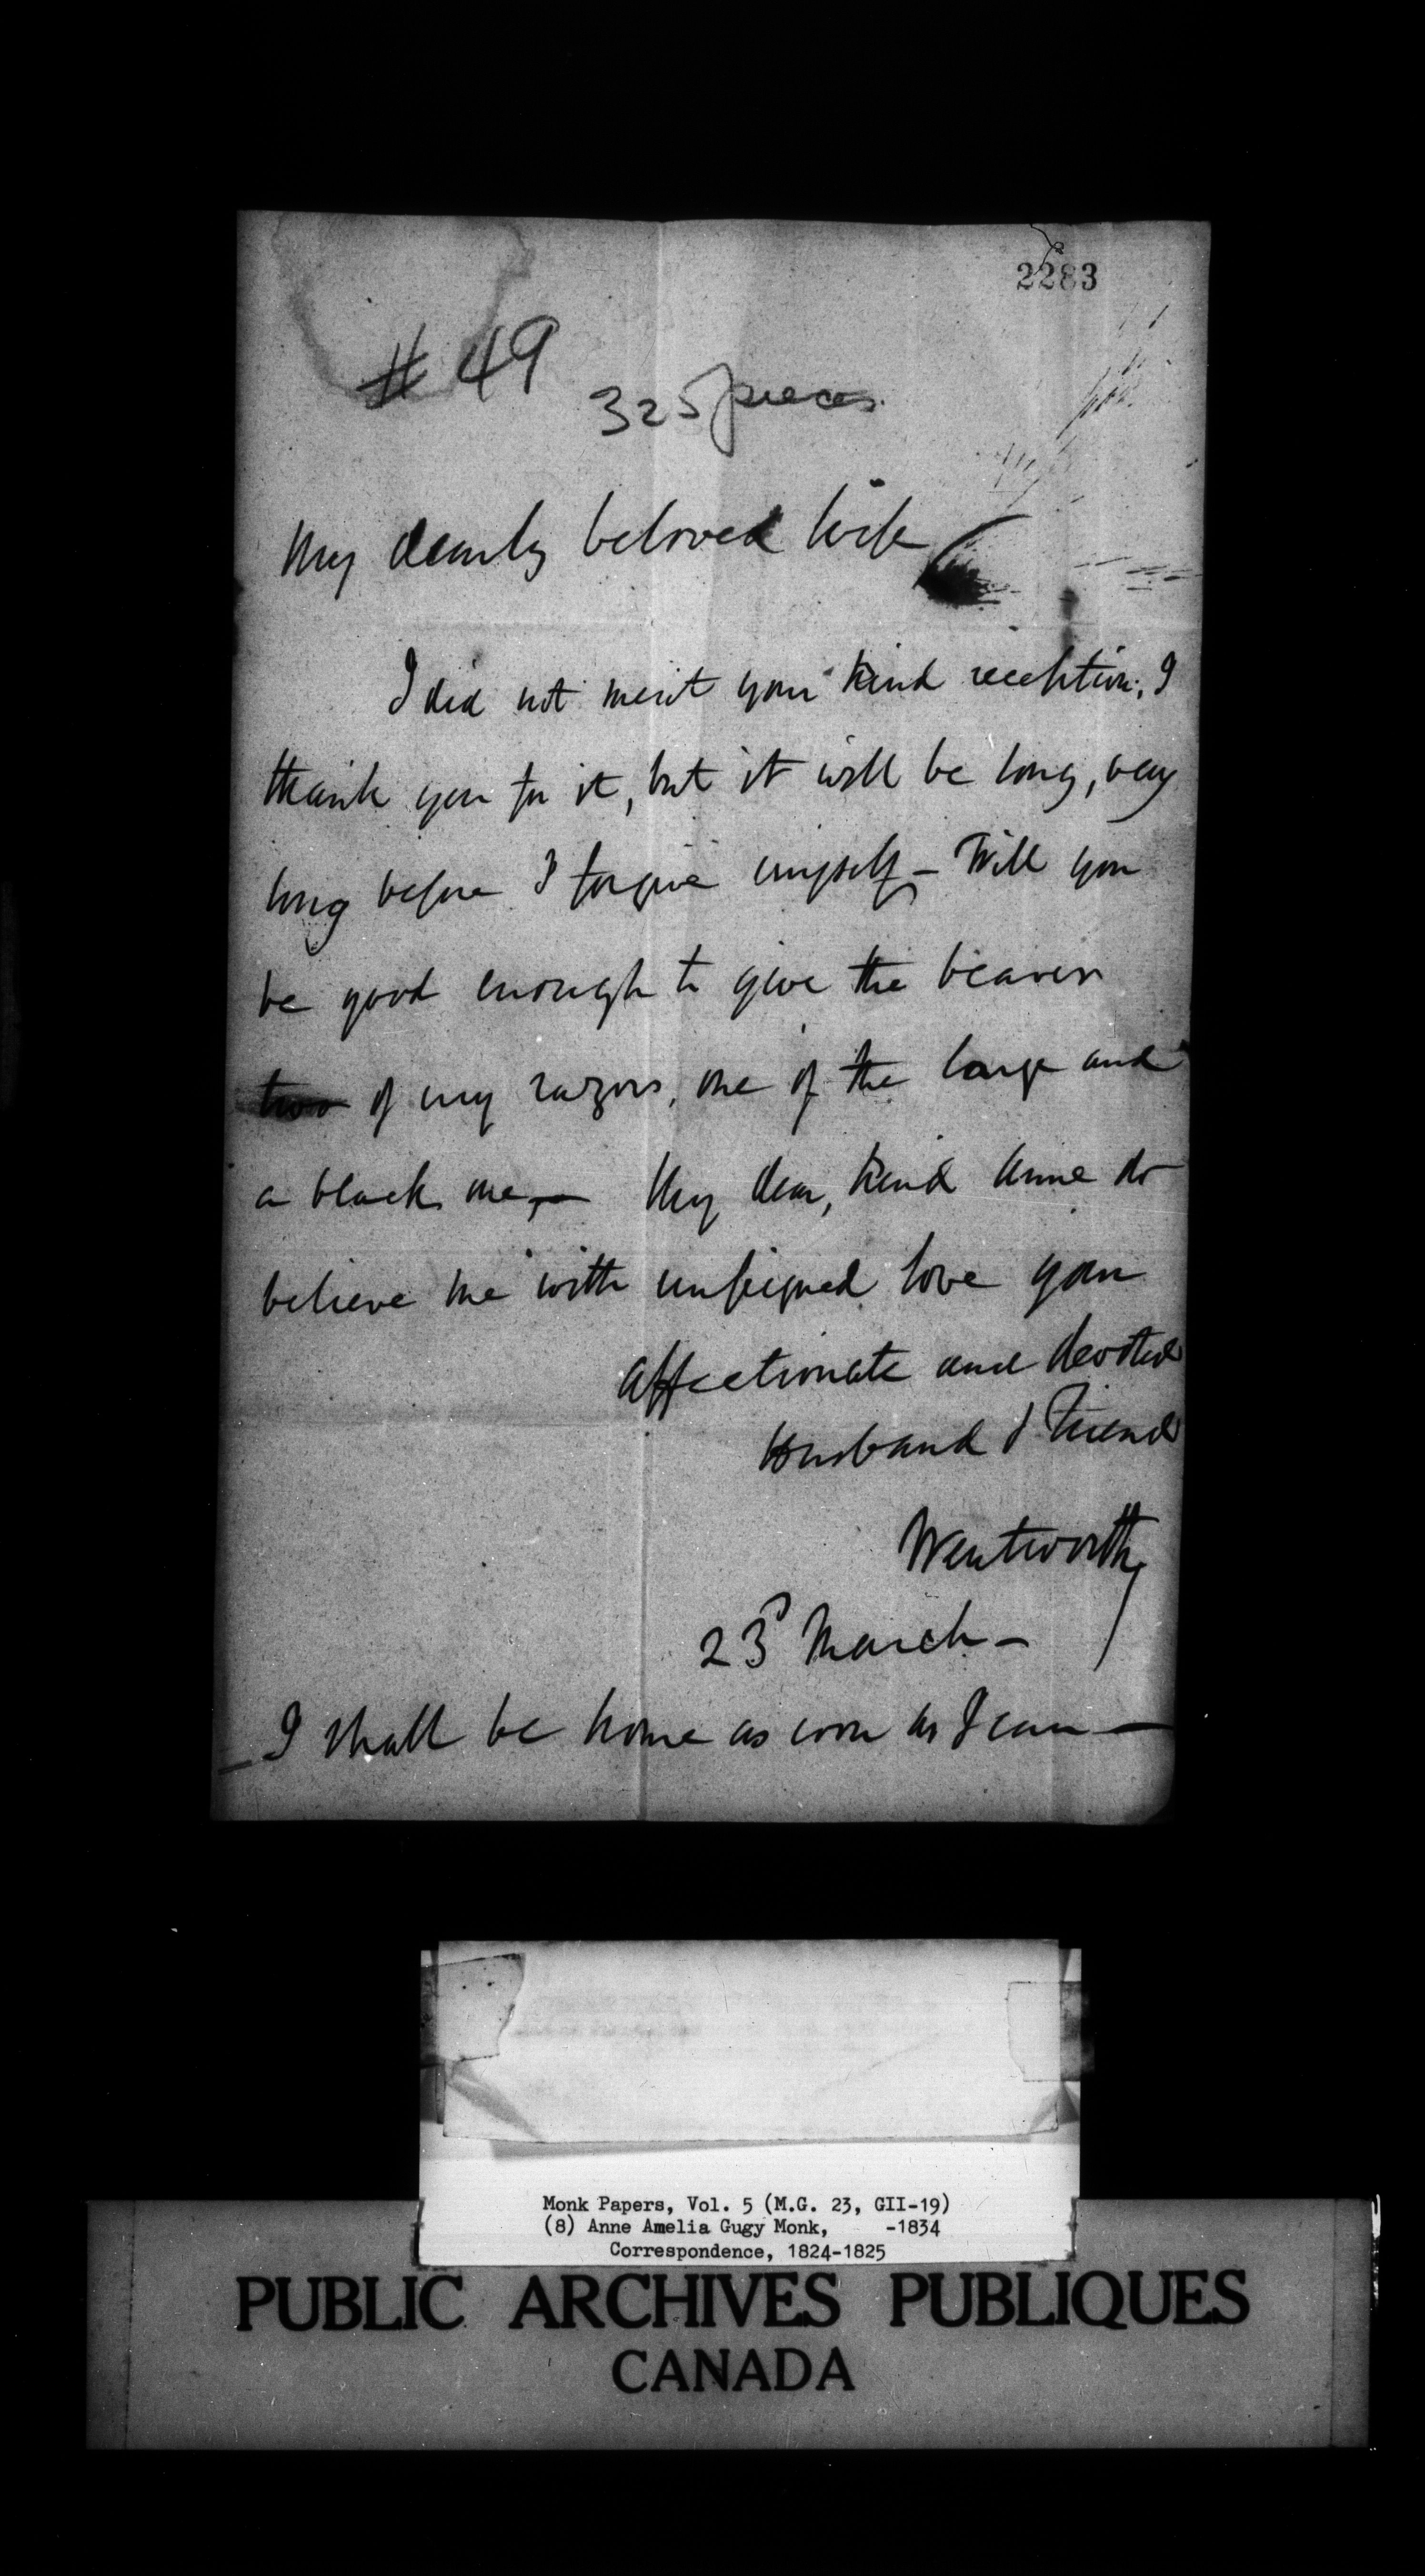 2283
# 49
325 pieces.
My dearly beloved Wife
I did not merit your kind reception; I
thank you for it, but it will be long, very
long before I forgive myself - Will you
be good enough to give the bearer
two of my razors, one of the large and
a black one, - My dear, kind Anne do
believe me with unfeigned love your
affectionate and devoted
Husband & Friend
Wentworth
23d March -
- I shall be home as soon as I can -
Monk Papers, Vol. 5 (M.G. 23, GII-19)
(8) Anne Amelia Gugy Monk, -1834
Correspondence, 1824-1825
PUBLIC ARCHIVES PUBLIQUES
CANADA